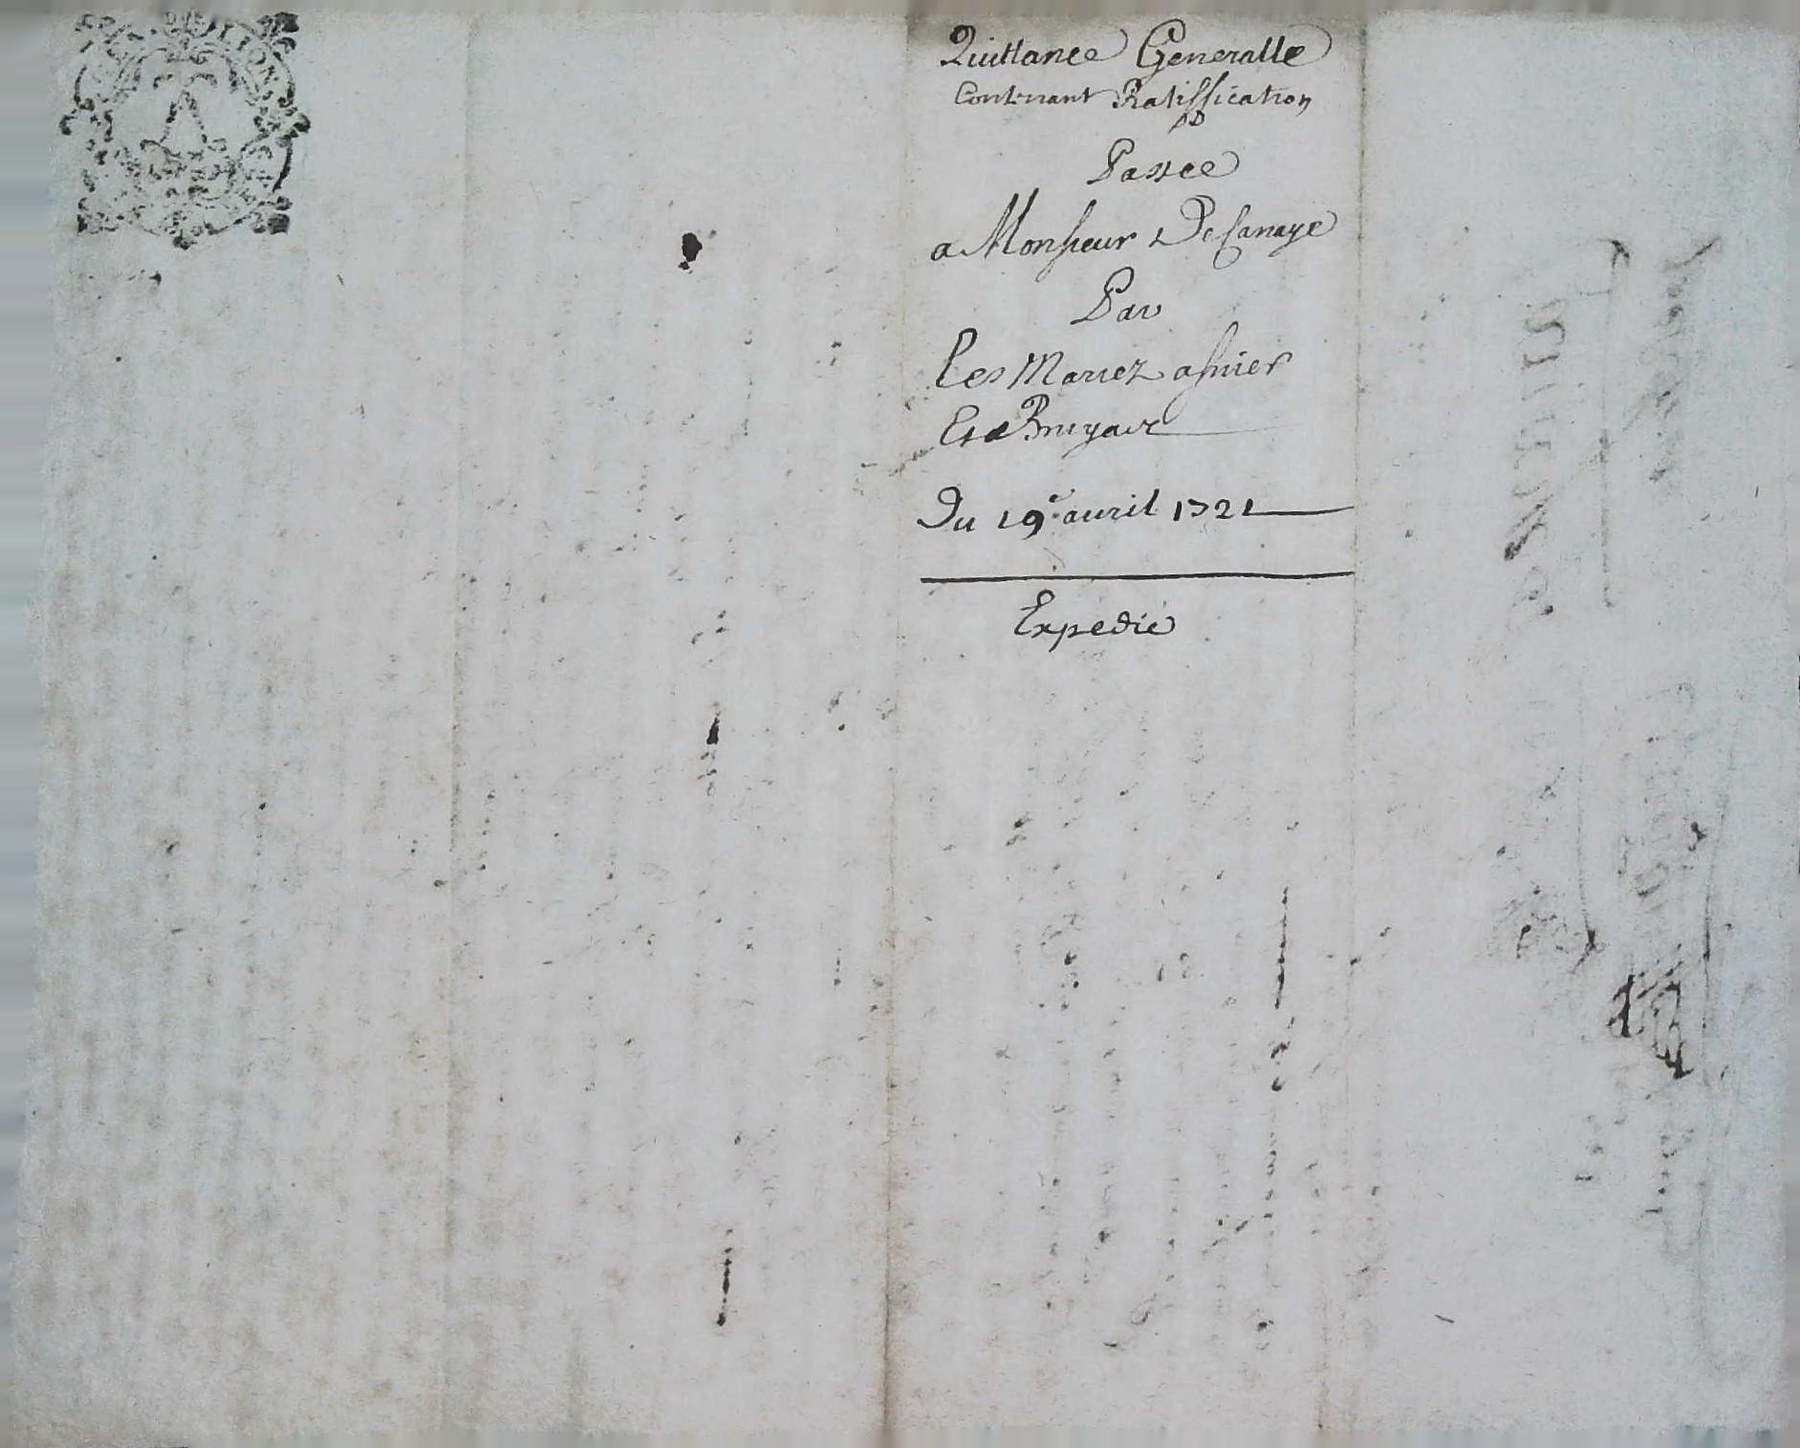 LION
Quittance Generalle
Contenant Ratiffication
Passee
a Monsieur De Canaye
Par
Les Mariez asnier
Et
Du 19e auril 1721
Expedié